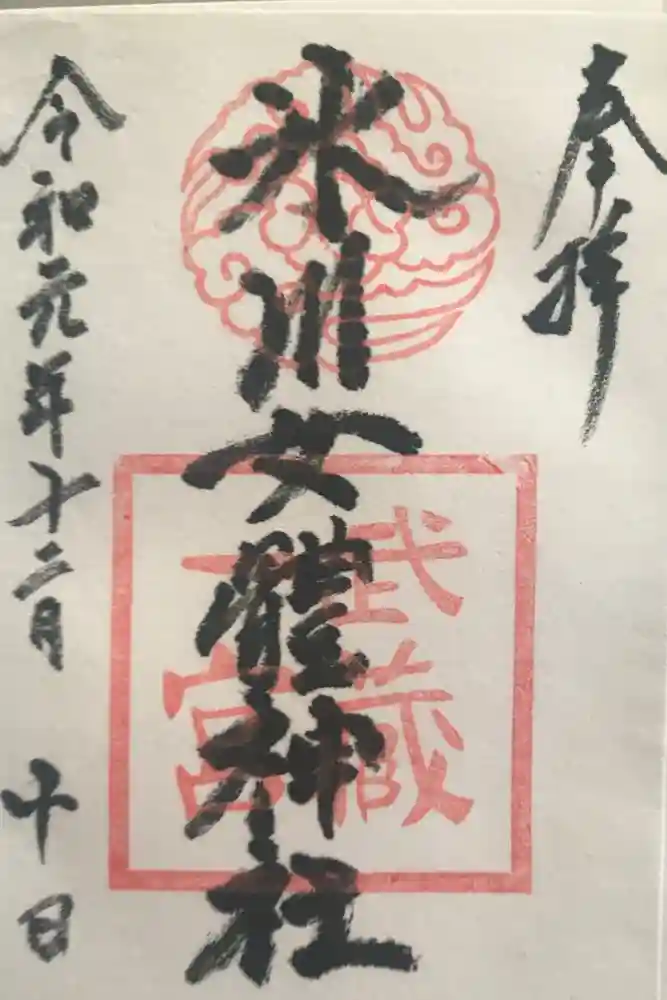 奉拝
氷川女體神社
武蔵
一宮
令和元年十二月 十日